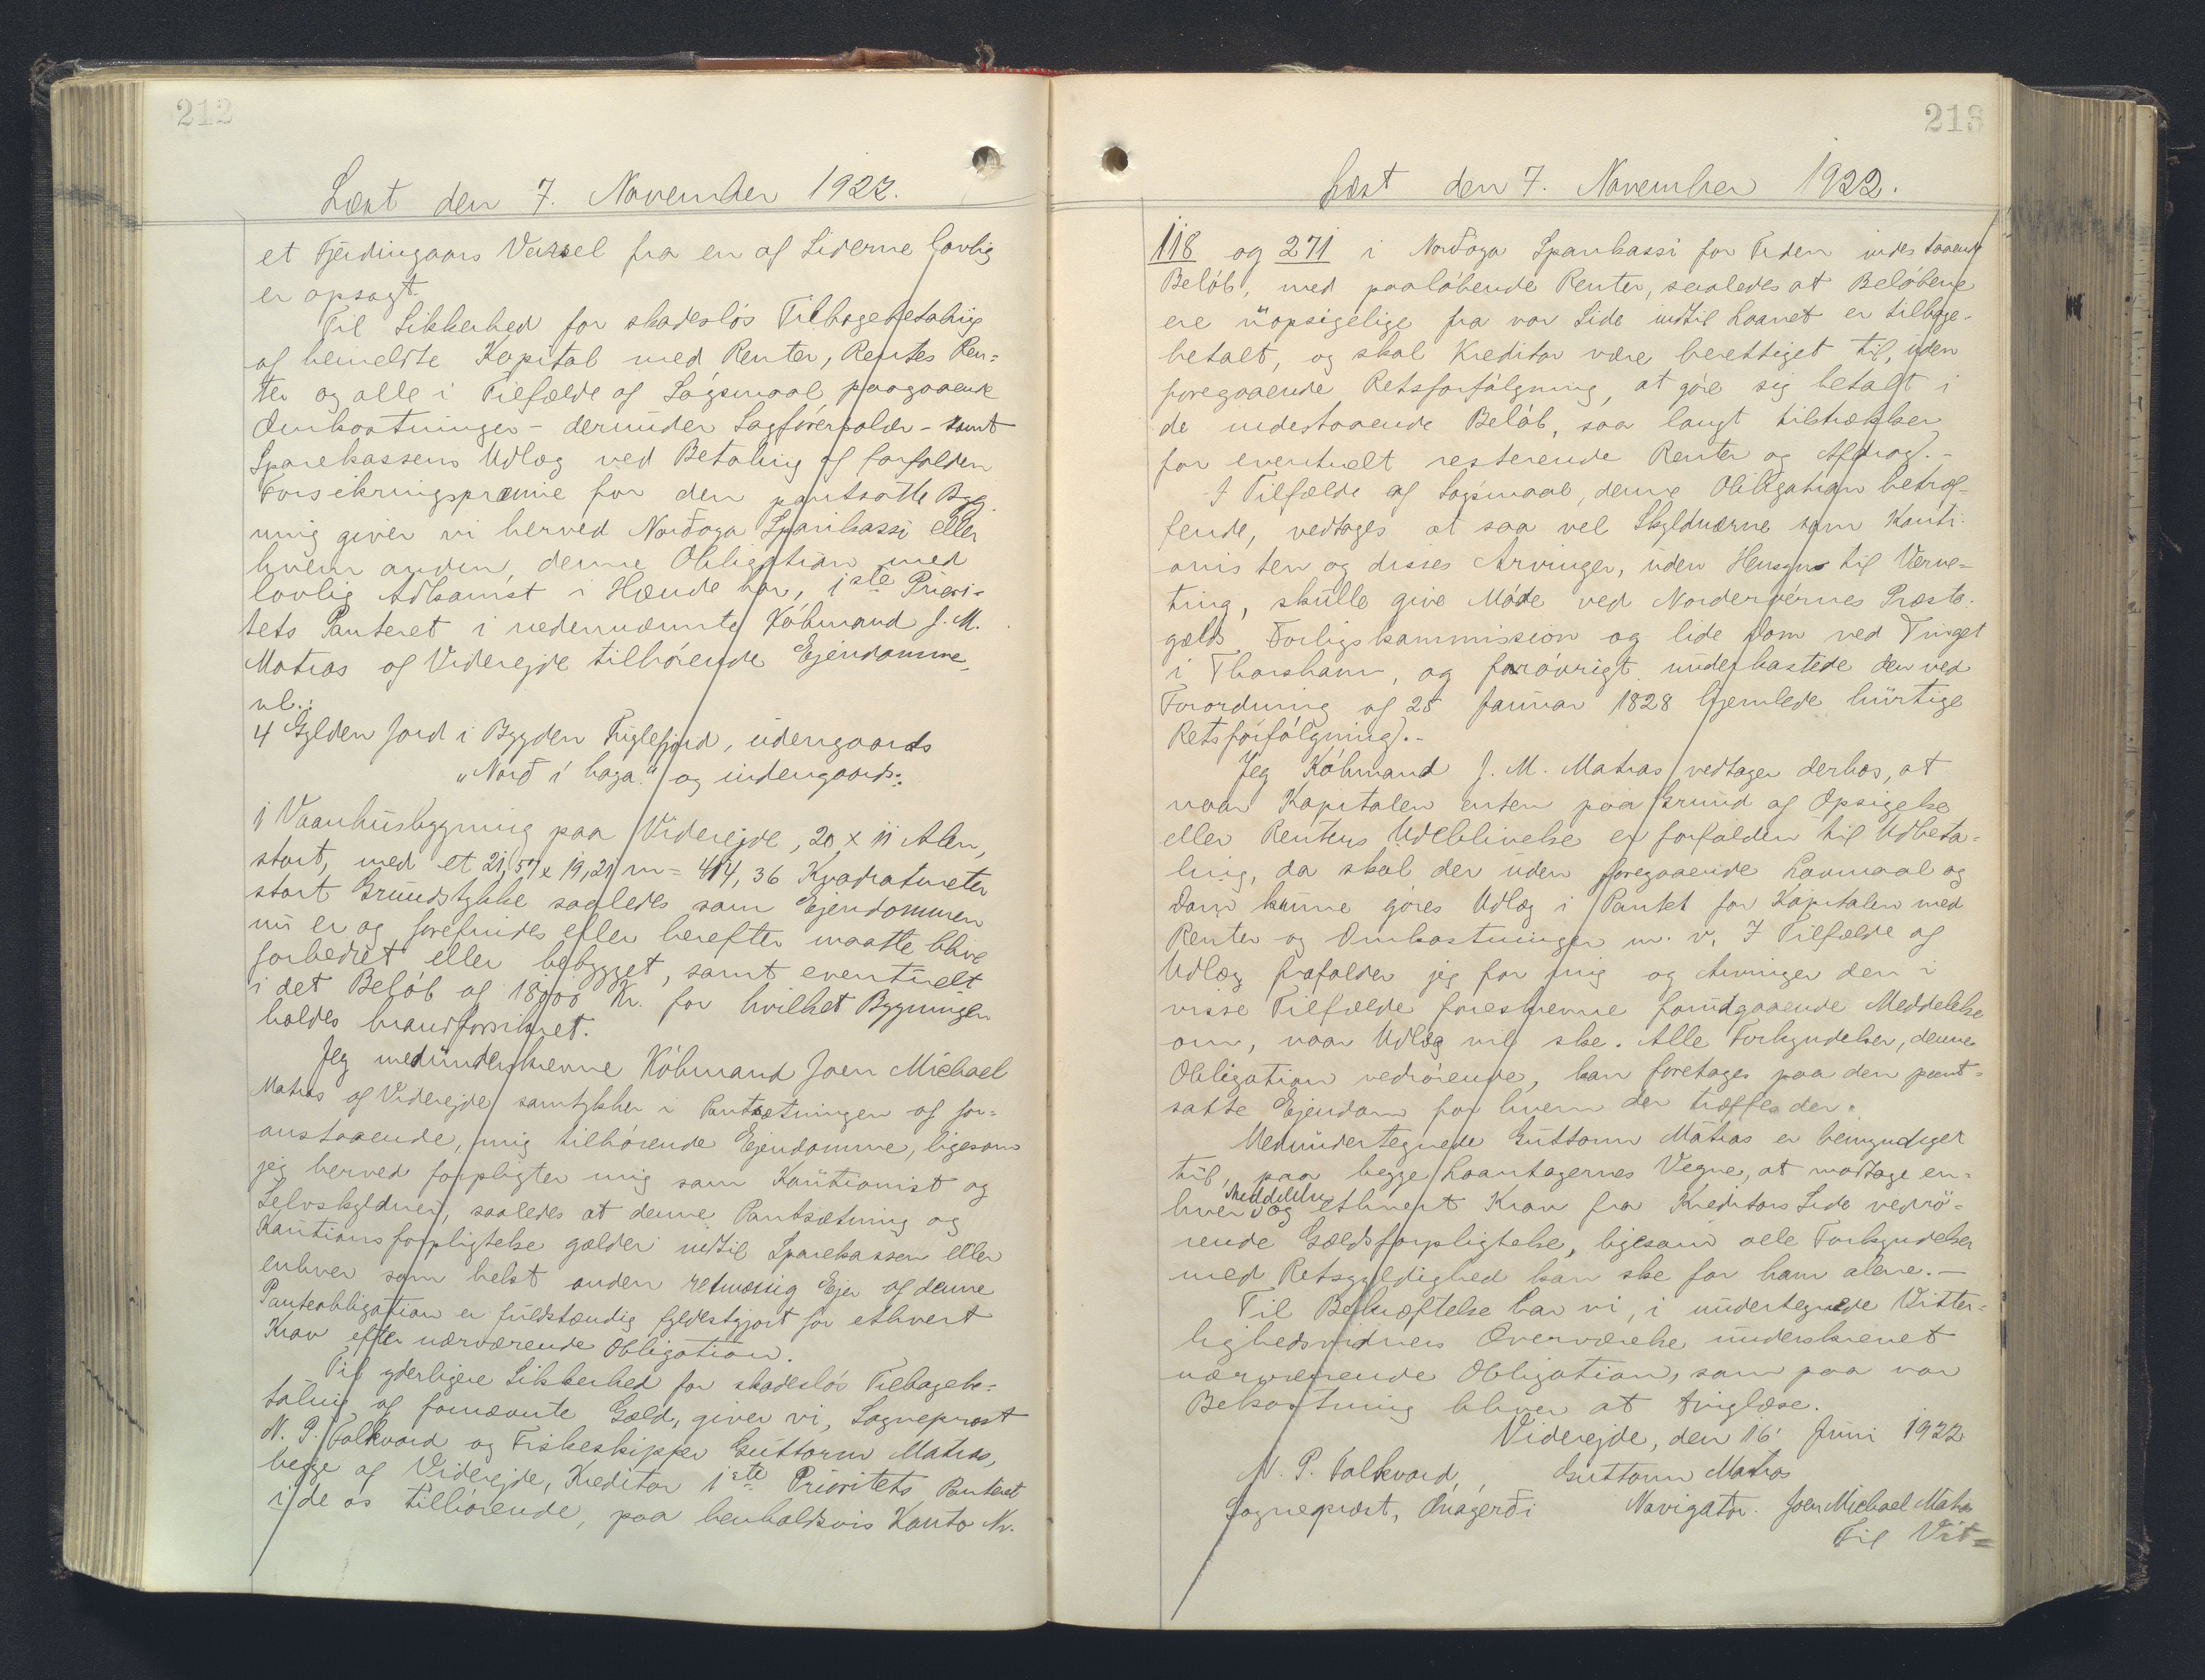 212
Læst den 7. November 1922.
et Fjerdingaars Varsel fra en af Siderne lovlig
er opsagt.
Til Sikkerhed for skadesløs Tilbagebetaling
af bemeldte Kapital med Renter, Rentes Ren=
ter og alle i Tilfælde af Søgsmaal paagaaende
Omkostninger - derunder Sagførersalær - samt
Sparekassens Udlæg ved Betaling af forfalden
Forsikringspræmie for den pantsatte Byg
ning giver vi herved Norðoya Sparikassi eller
hvem anden, denne Obligation med
lovlig Adkomst i Hænde har, 1ste Priori-
tets Panteret i nedennævnte Købmand J. M.
Matras af Viderejde tilhørende Ejendomme,
nl.:
4 Gylden Jord i Bygden Fuglefjord, udengaards
"Norð í haga" og indengaards:
1 Vaanhusbygning paa Viderejde, 20 x 11 Alen,
stort, med et 21,57 x 19,21 m = 414,36 Kvadratmeter
stort Grundstykke saaledes som Ejendommen
nu er og forefindes eller herefter maatte blive
forbedret eller bebygget, samt eventuelt
i det Beløb af 18000 Kr. for hvilket Bygningen
holdes brandforsikret.
Jeg medunderskrevne Købmand Joen Michael
Matras af Viderejde samtykker i Pantsætningen af for=
anstaaende, mig tilhørende Ejendomme, ligesom
jeg herved forpligter mig som Kautionist og
Selvskyldner, saaledes at denne Pantsætning og
Kautionsforpligtelse gælder indtil Sparekassen eller
enhver som helst anden retmæssig Ejer af denne
Panteobligation er fuldstændig fyldestgjort for ethvert
Krav efter nærværende Obligation.
Til yderligere Sikkerhed for skadesløs Tilbagebe=
taling af fornævnte Gæld, giver vi, Sognepræst
N. P. Falkvard og Fiskeskipper Guttorm Matras,
begge af Viderejde, Kreditor 1ste Prioritets Panteret
i de os tilhørende, paa henholdsvis Konto Nr.
213
Læst den 7. November 1922.
118 og 271 i Norðoya Sparikassi for Tiden indestaaende
Beløb, med paaløbende Renter, saaledes at Beløbene
ere uopsigelige fra vor Side indtil Laanet er tilbage-
betalt, og skal Kreditor være berettiget til, uden
foregaaende Retsforfølgning, at gøre sig betalt i
de indestaaende Beløb, saa langt tilstrækker
for eventuelt resterende Renter og Afdrag. -
I Tilfælde af Søgsmaal, denne Obligation betræf-
fende, vedtages at saa vel Skyldnerne som Kauti-
onisten og disses Arvinger, uden Hensyn til Værne=
ting, skulle give Møde ved Norderøernes Præste-
gælds Forligskommission og lide Dom ved Tinget
i Thorshavn, og forøvrigt underkastede den ved
Forordning af 25 Januar 1828 hjemlede hurtige
Retsforfølgning. -
Jeg Købmand J. M. Matras vedtager derhos, at
naar Kapitalen enten paa Grund af Opsigelse
eller Rentens Udeblivelse er forfalden til Udbeta=
ling, da skal der uden foregaaende Lovmaal og
Dom kunne gøres Udlæg i Pantet for Kapitalen med
Renter og Omkostninger m. v. I Tilfælde af
Udlæg frafalder jeg for mig og Arvinger den i
visse Tilfælde foreskrevne forudgaaende Meddelelse
om, naar Udlæg vil ske. Alle Forkyndelser, denne
Obligation vedrørende, kan foretages paa den pant=
satte Ejendom for hvem der træffes der.
Medundertegnede Guttorm Matras er bemyndiget
til, paa begge Laantagernes Vegne, at modtage en=
hver Meddelelse og ethvert Krav fra Kreditors Side vedrø=
rende Gældsforpligtelse, ligesom alle Forkyndelser
med Retsgyldighed kan ske for ham alene. -
Til Bekræftelse har vi, i undertegnede Vitter=
lighedsvidners Overværelse underskrevet
nærværende Obligation, som paa vor
Bekostning bliver at tinglæse.
Viderejde, den 16' Juni 1922
N. P. Falkvard, Guttorm Matras
Sognepræst, Ónagerði Navigatør. Joen Michael Matras
Til Vit=